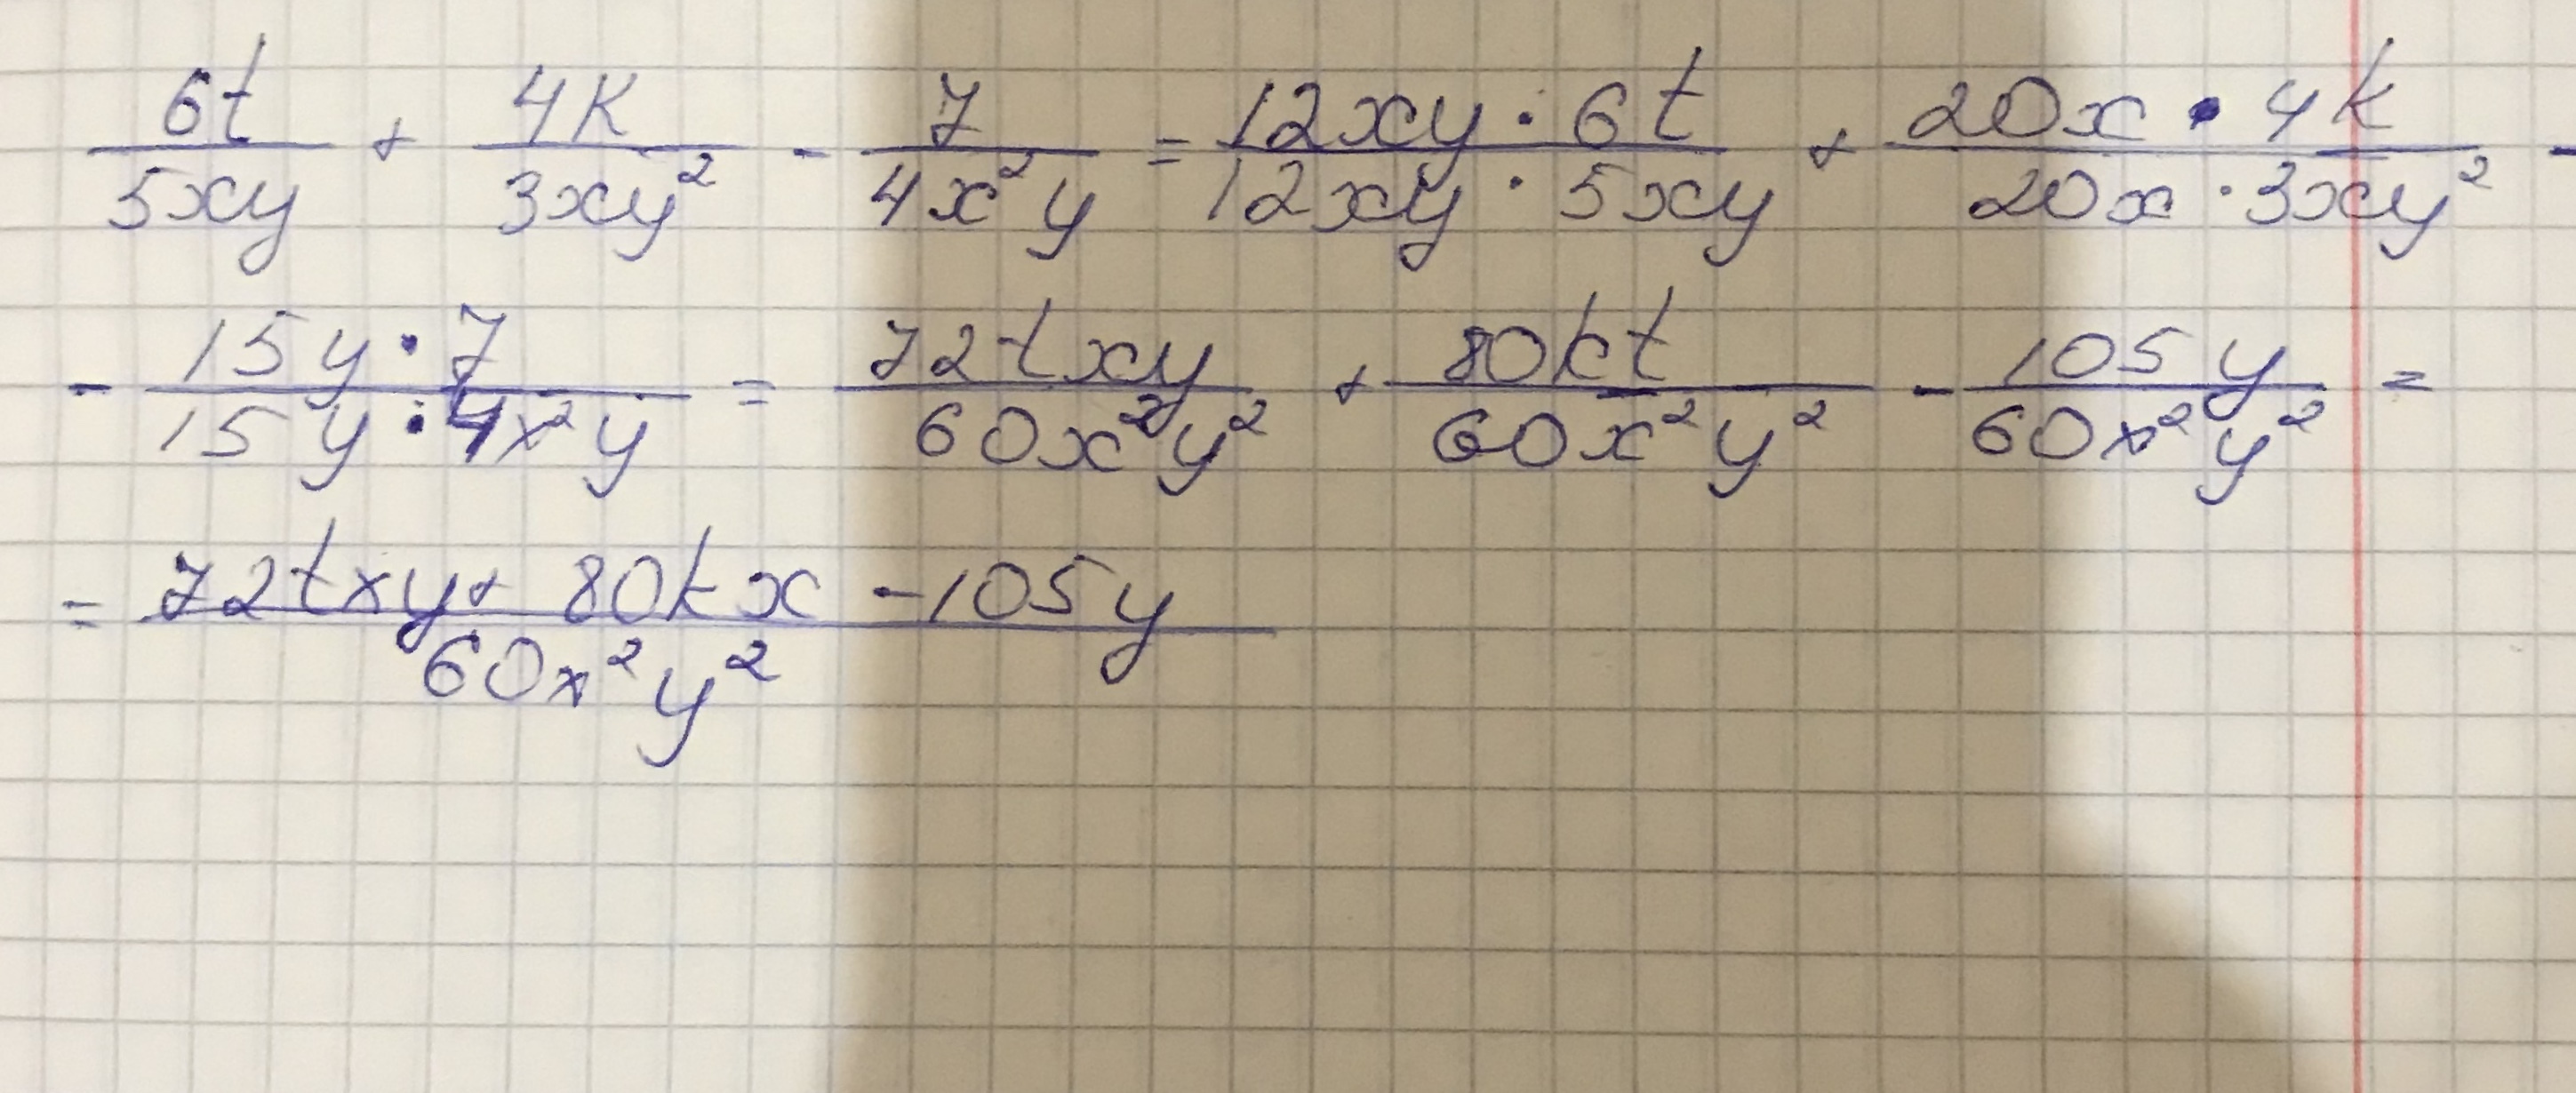 6t/5xy + 4k/3xy² - 7/4x²y = 12xy · 6t/12xy · 5xy + 20x · 4k/20x · 3xy² -
- 15y · 7/15y · 4x²y = 72txy/60x²y² + 80kt/60x²y² - 105y/60x²y² =
= 72txy + 80kx - 105y/60x²y²